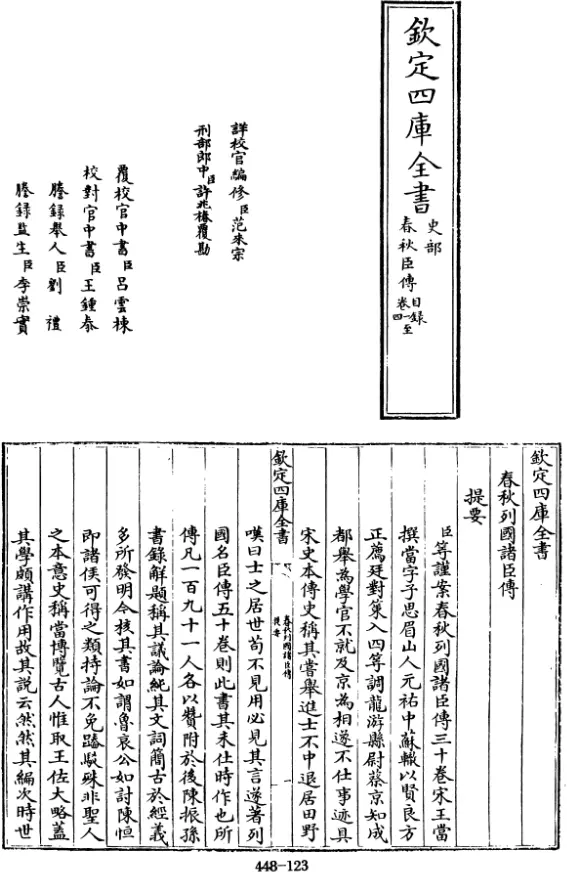 欽定四庫全書
史部
春秋臣傳
目錄
卷一至
四
詳校官編修臣范來宗
刑部郎中臣許兆椿覆勘
覆校官中書臣呂雲棟
校對官中書臣王鍾泰
謄錄舉人臣劉禮
謄錄監生臣李崇實
欽定四庫全書
春秋列國諸臣傳
提要
臣等謹案春秋列國諸臣傳三十卷宋王當
撰當字子思眉山人元祐中蘇轍以賢良方
正薦廷對策入四等調龍游縣尉蔡京知成
都舉為學官不就及京為相遂不仕事迹具
宋史本傳史稱其嘗舉進士不中退居田野
欽定四庫全書
春秋列國諸臣傳
提要
一
嘆曰士之居世茍不見用必見其言遂著列
國名臣傳五十卷則此書其未仕時作也所
傳凡一百九十一人各以贊附於後陳振孫
書錄解題稱其議論純其文詞簡古於經義
多所發明今核其書如謂魯哀公如討陳恒
即諸侯可得之類持論不免踳駁殊非聖人
之本意史稱當博覽古人惟取王佐大略蓋
其學頗講作用故其說云然然其編次時世
448-123